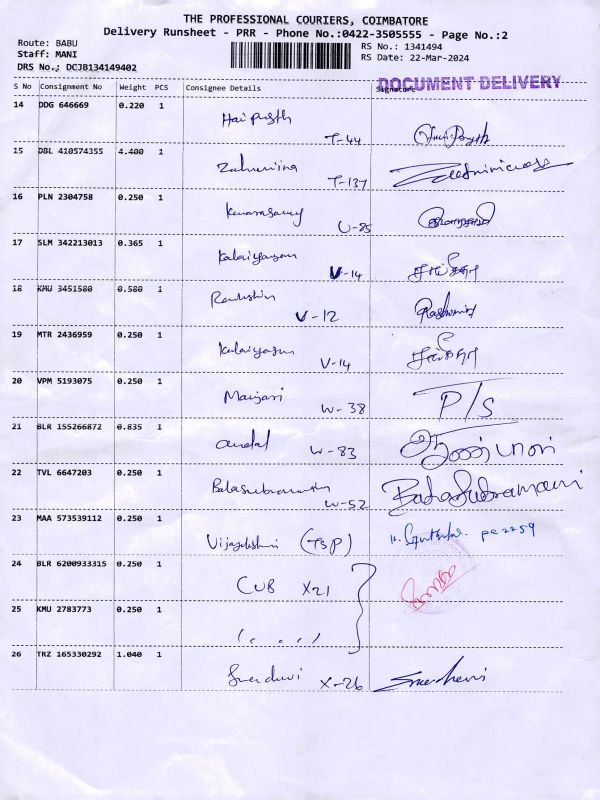 THE PROFESSIONAL COURIERS, COIMBATORE
Delivery Runsheet - PRR - Phone No.:0422-3505555 - Page No.:2
Route: BABU
Staff: MANI
DRS No.: DCJB134149402
RS No.: 1341494
RS Date: 22-Mar-2024
DOCUMENT DELIVERY
S No Consignment No Weight PCS Consignee Details Signature
14 DDG 646669 0.220 1
T-44
15 DBL 410574355 4.400 1
T-137
16 PLN 2304758 0.250 1
U-85
17 SLM 342213013 0.365 1 Kalaiyarasan
V-14
18 KMU 3451580 0.580 1
V-12
19 MTR 2436959 0.250 1
V-14
20 VPM 5193075 0.250 1
W-38 P/S
21 BLR 155266872 0.835 1 andal
W-83 ஆண்டாள்
22 TVL 6647203 0.250 1 Balasubramani
W-52 BalaSubramani
23 MAA 573539112 0.250 1
(TSP) pc 2259
24 BLR 6200933315 0.250 1 CUB X21
25 KMU 2783773 0.250 1
26 TRZ 165330292 1.040 1
X-26